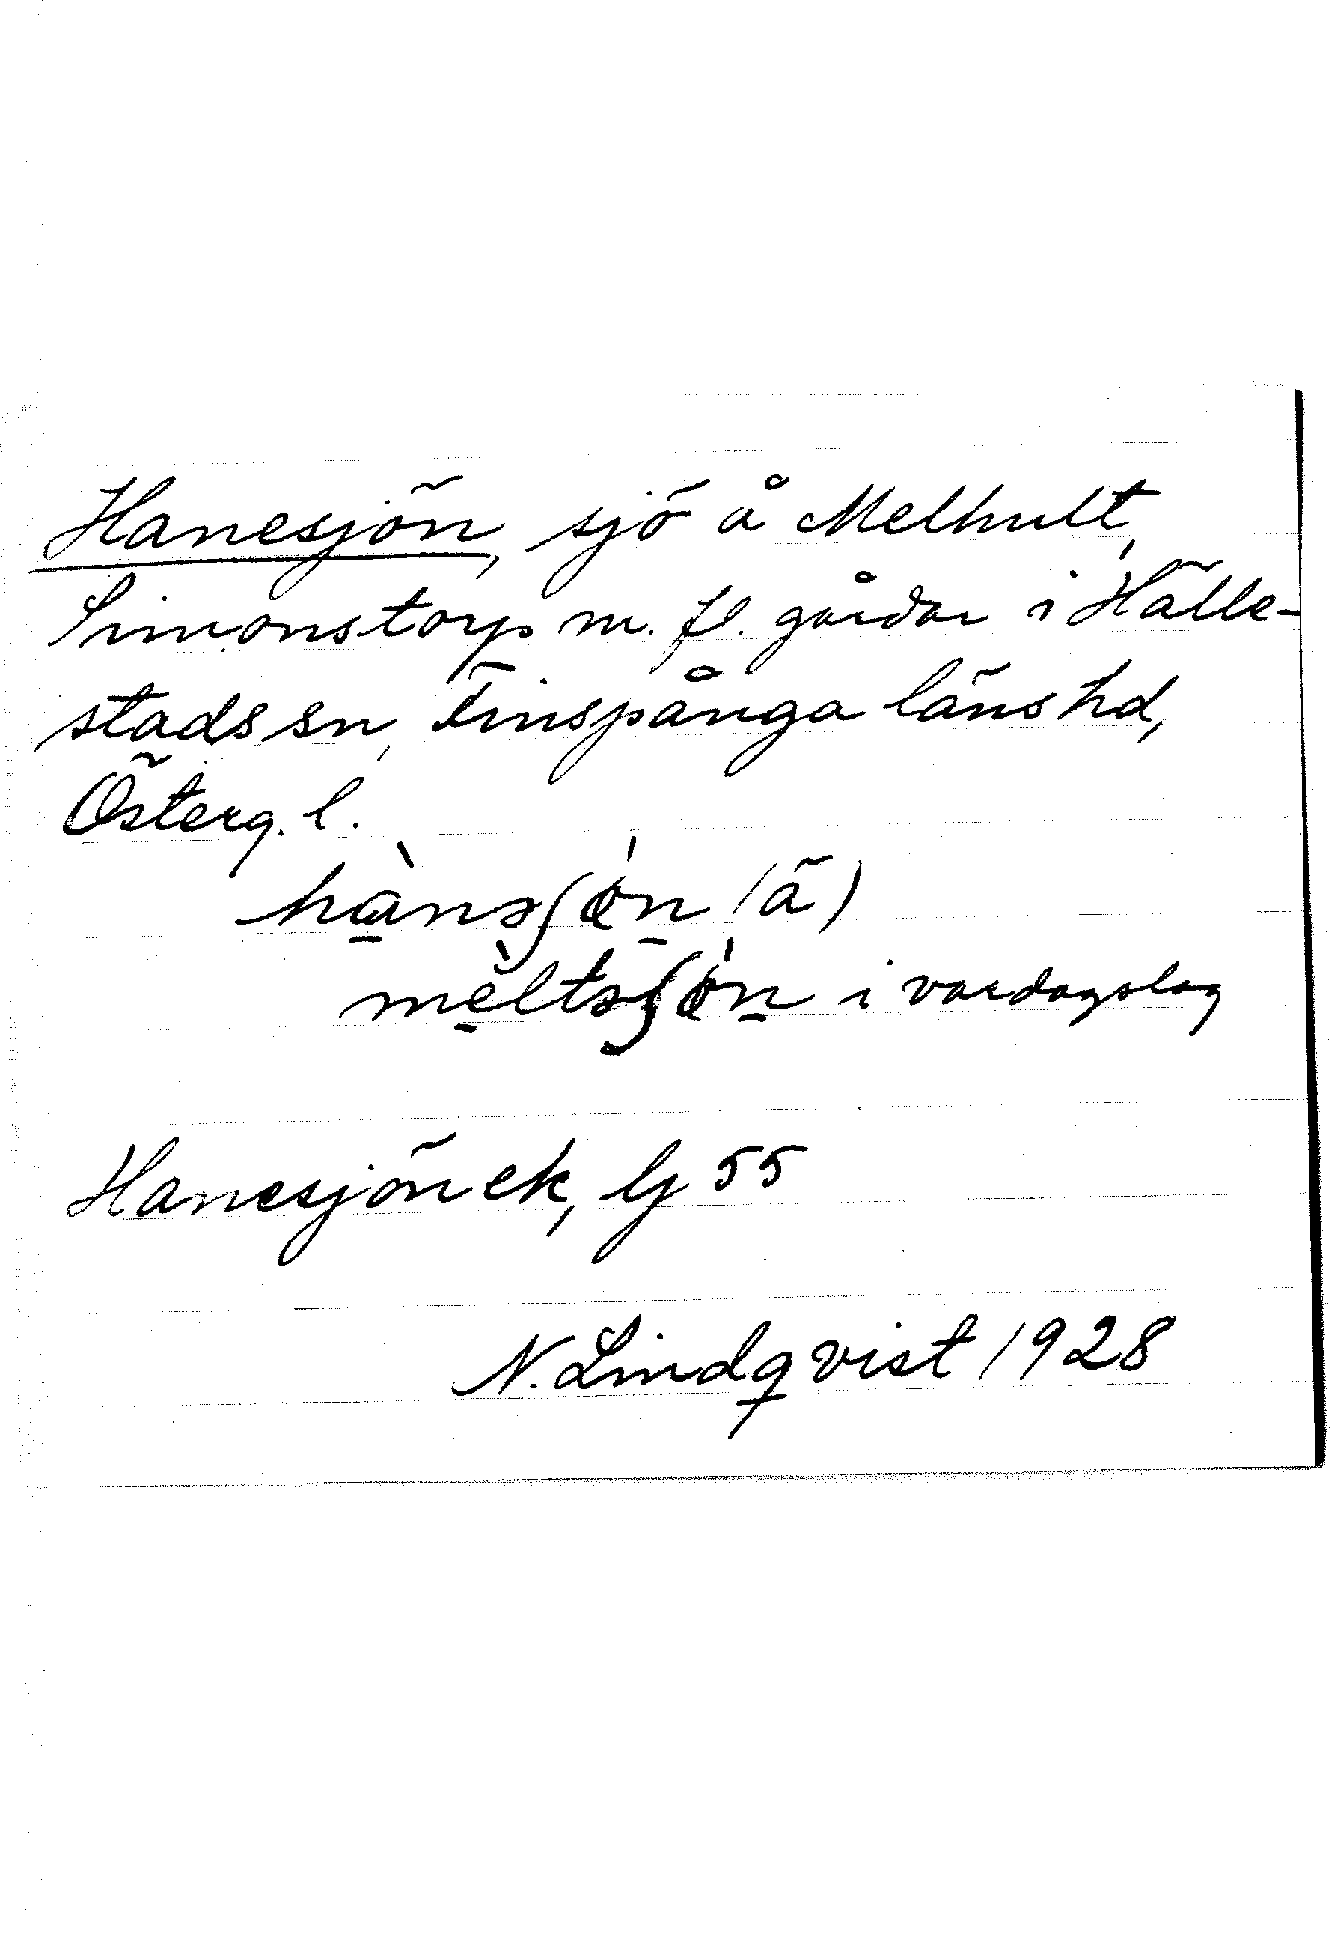 Hanesjön, sjö å Melhult,
Simonstorp m. fl. gårdar i Hälle-
stads sn, Finspånga läns hd,
Österg. l.
hànəʃǿn (ä)
mèltəʃǿn i vardagslag
Hanesjön ek, lj 55
N. Lindqvist 1928